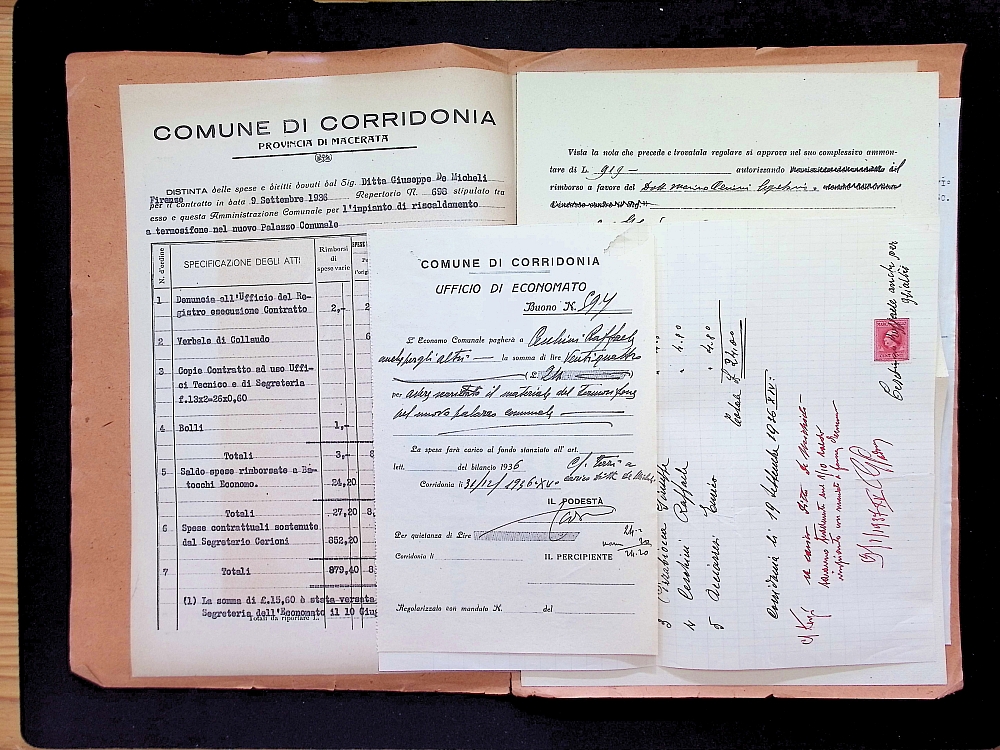 COMUNE DI CORRIDONIA
PROVINCIA DI MACERATA
DISTINTA delle spese e diritti dovuti dal Sig. Ditta Giuseppe De Micheli
Firenze
per il contratto in data 9 Settembre 1936 Repertorio N. 698 stipulato tra
esso e questa Amministrazione Comunale per l'impianto di riscaldamento
a termosifone nel nuovo Palazzo Comunale
N. d'ordine
SPECIFICAZIONE DEGLI ATTI
Rimborsi
di
spese varie
1 Denuncia all'Ufficio del Re-
gistro esecuzione Contratto 2,-
2 Verbale di Collaudo
3 Copie Contratto ad uso Uffi-
ci Tecnico e di Segreteria
f.13x2=26x0,60
4 Bolli 1,-
Totali 3,-
5 Saldo spese rimborsate a Ba-
tocchi Economo. 24,20
Totali 27,20
6 Spese contrattuali sostenute
dal Segretario Cerioni 852,20
7 Totali 879,40
(1) La somma di £.15,60 è stata versata
Segreteria dell'Economato il 10 Giug
Totali da riportare L.
COMUNE DI CORRIDONIA
UFFICIO DI ECONOMATO
Buono N. 594
L'Economo Comunale pagherà a Cecchini Raffaele
anche per gli altri la somma di lire Ventiquattro
(L. 24
per aver scaricato il materiale del termosifone
nel nuovo palazzo comunale
La spesa farà carico al fondo stanziato all'art.
lett. del bilancio 1936
Corridonia li 31/12/1936-XV
C/ Terzi a
carico Ditta De Micheli
IL PODESTÀ
Per quietanza di Lire
24-
20
24.20
Corridonia li
IL PERCIPIENTE
Regolarizzato con mandato N. del
Vista la nota che precede e trovatala regolare si approva nel suo complessivo ammon-
tare di L. 919 autorizzando il
rimborso a favore del Dott.
3 Giuseppe
4 Cecchini Raffaele " 4.80
5 " 4.80
Totale £ 24.00
Corridonia li 19 Settembre 1936 XIV.
Cecchini Raffaele anche per
gli altri
a carico Ditta De Micheli